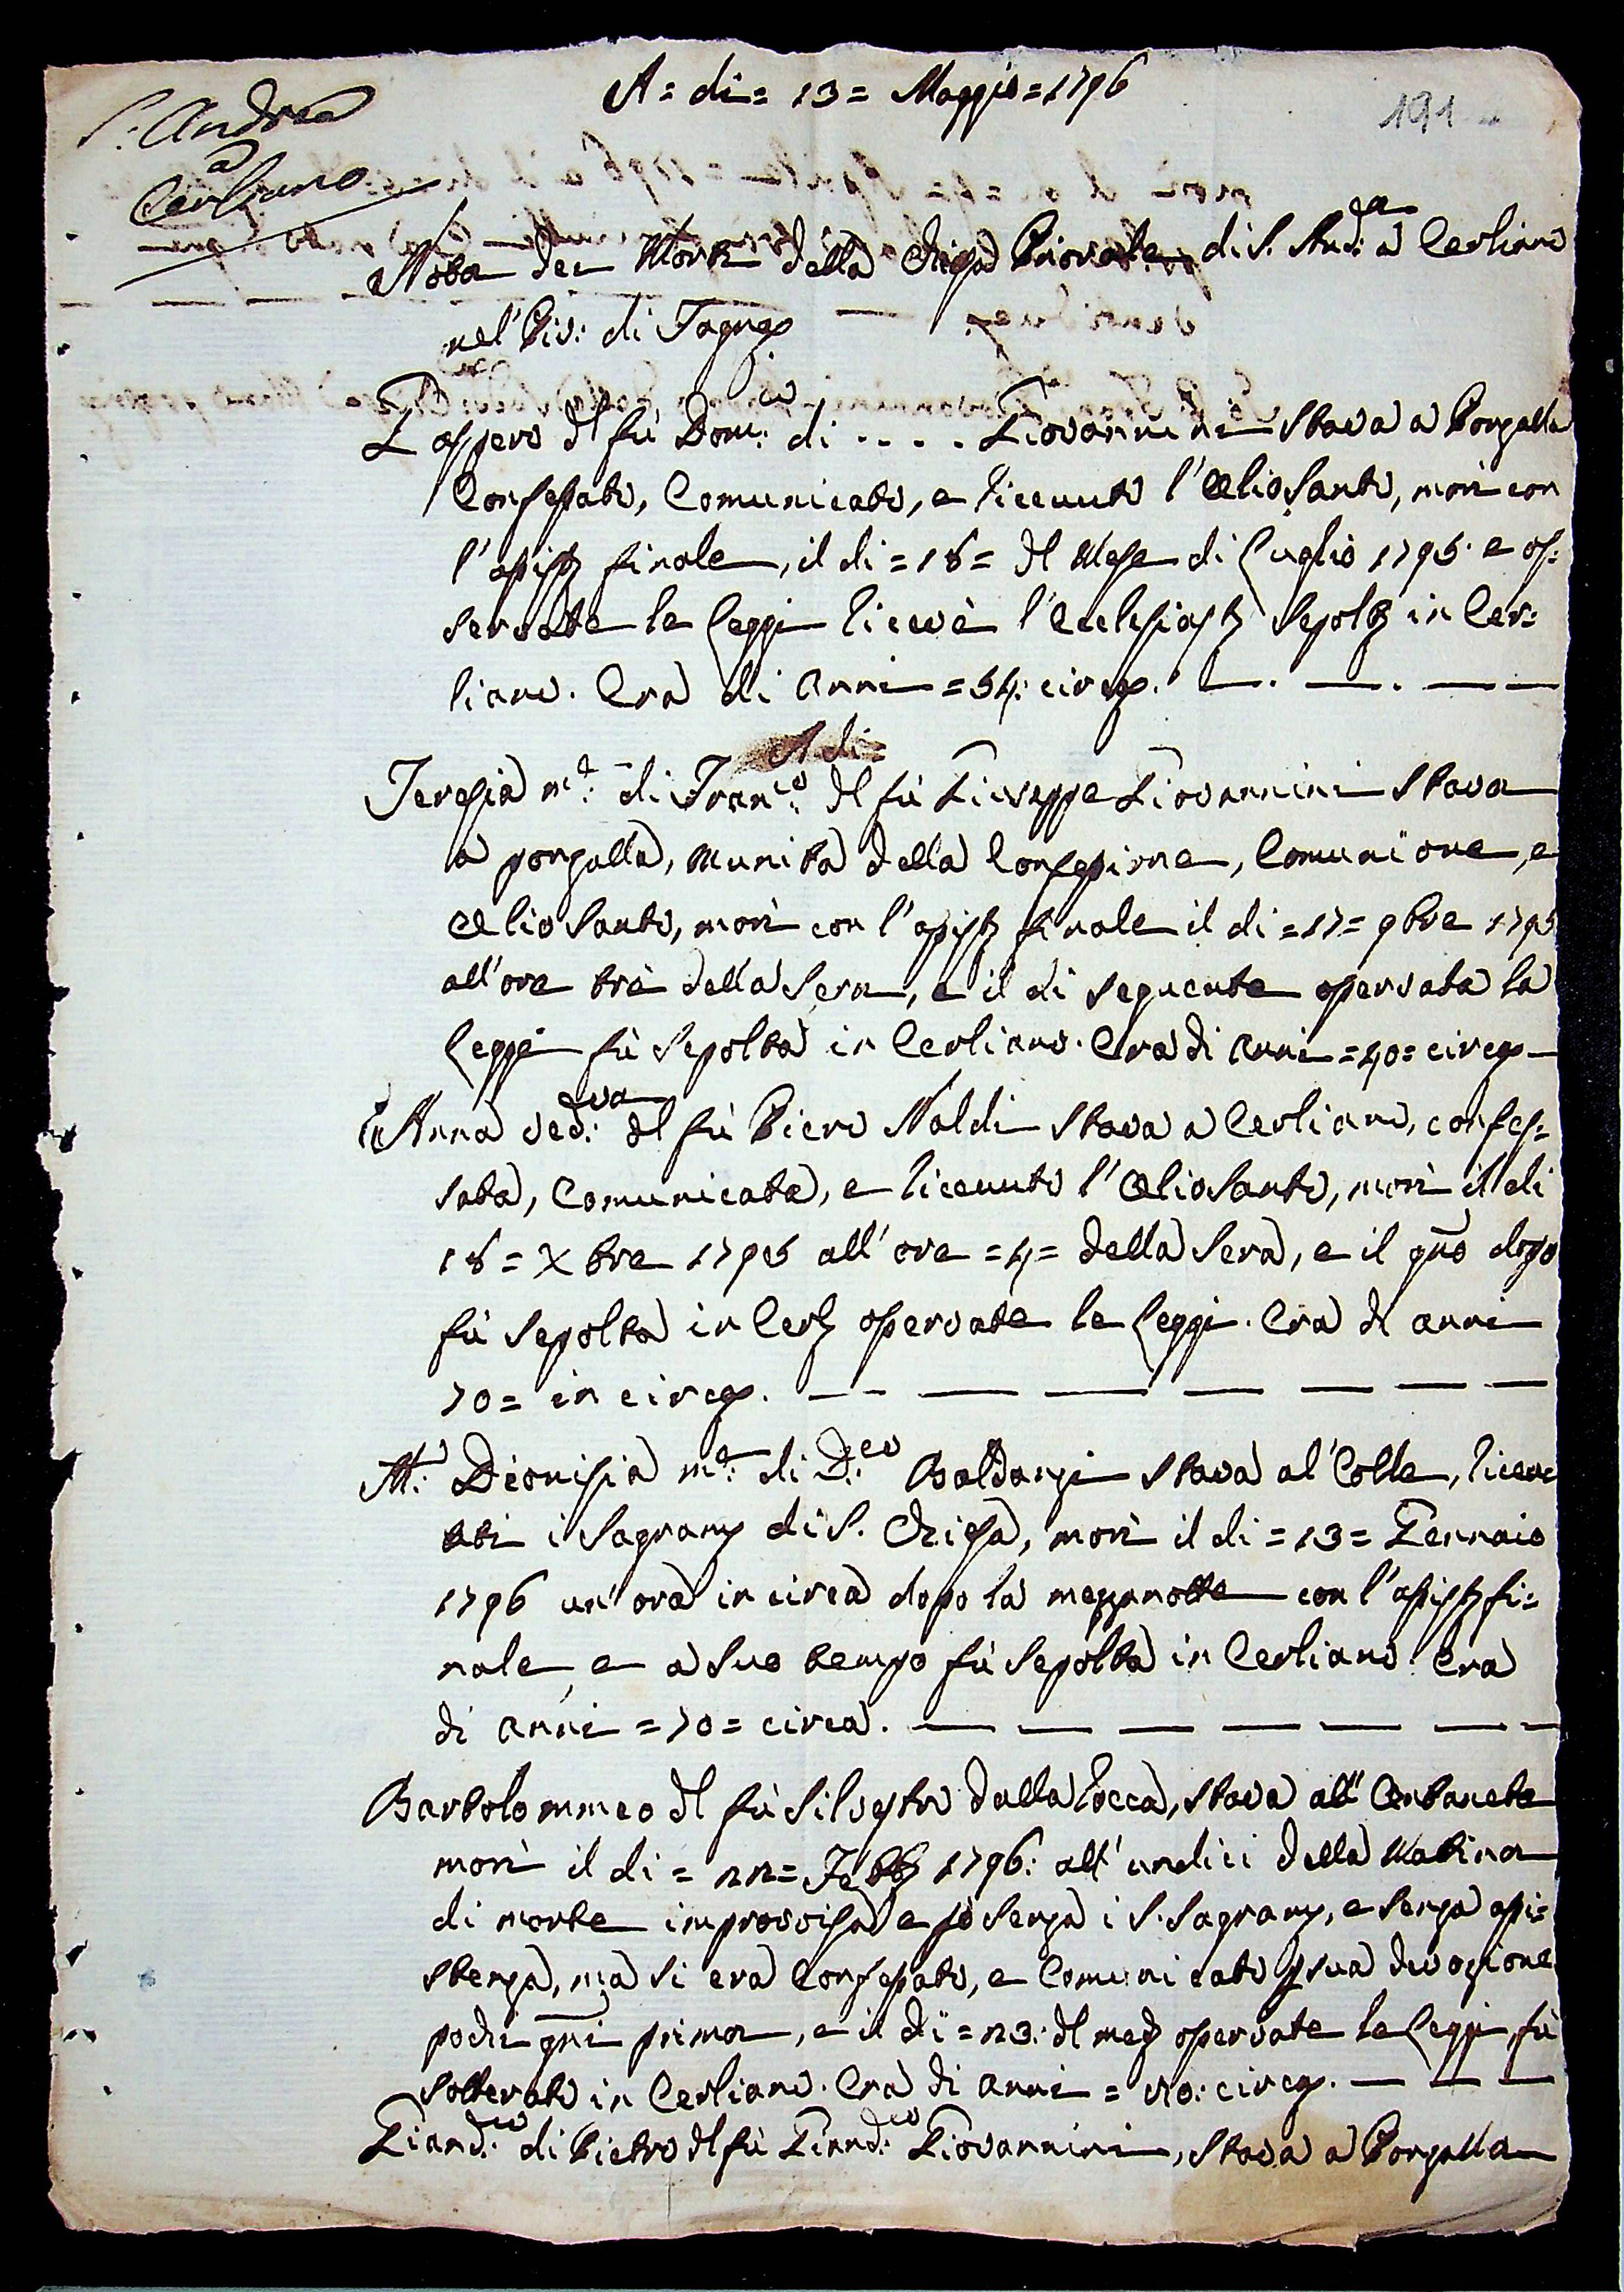 A = di = 13 = Maggio = 1796
191
S. Andrea
a
Cerliano
Nota dei Morti della Chiesa Priorale di S. And:ª a Cerliano
nel Piv: di Tagnaª
Gasparo dl fù Dom:co di . . . . Giovannini stava a Ponzalla
Confessato, Comunicato, e ricevuto l'Olio Santo, morì con
l'assistª finale, il di = 18 = dl Mese di Luglio 1795. e os:
servate le Leggi ricevè l'Ecclesiastª Sepoltª in Cer:
liano. Era di anni = 54: circaª. — . — . — —
A di =
Teresia mª: di Fran:co dl fù Giuseppe Giovannini stava
a ponzalla, munita della Confessione, Comunione, e
Olio Santo, morì con l'assistª finale il di = 17 = 9bre 1795
all'ore trè della Sera, e il di seguente osservata la
Legge fù Sepolta in Cerliano. Era di anni = 40 = circaª —
Anna ved:ova dl fù Piero Naldi stava a Cerliano, confes:
sata, Comunicata, e ricevuto l'Olio Santo, morì il di
18 = Xbre 1795 all'ore = 4 = della Sera, e il gno dopo
fù Sepolta in Cerlª osservate le Leggi. Era di anni
70 = in circaª. — — — — — — — —
M:ª Dionisia mª: di D:co Baldanzi stava al Colle, ricevu
ti i Sagramª di S. Chiesa, morì il di = 13 = Gennaio
1796 un'ora in circa dopo la mezzanotte con l'assistª fi:
nale, e a suo tempo fù Sepolta in Cerliano. Era
di anni = 70 = circa. — — — — — — —
Bartolommeo dl fù Silvestro dalla Rocca, stava all'
morì il di = 22 = Febbª 1796: all'undici della Matina
di morte improvvisa e senza i S. Sagramª, e senza assi=
stenza, ma si era Confessato, e Comunicato p sua divozione
pochi gni prima, e il di = 23: dl medª osservate le Leggi fù
sotterato in Cerliano. Era di anni = circaª. — — —
Giand:co di Pietro dl fù Giand:co Giovannini, stava a Ponzalla